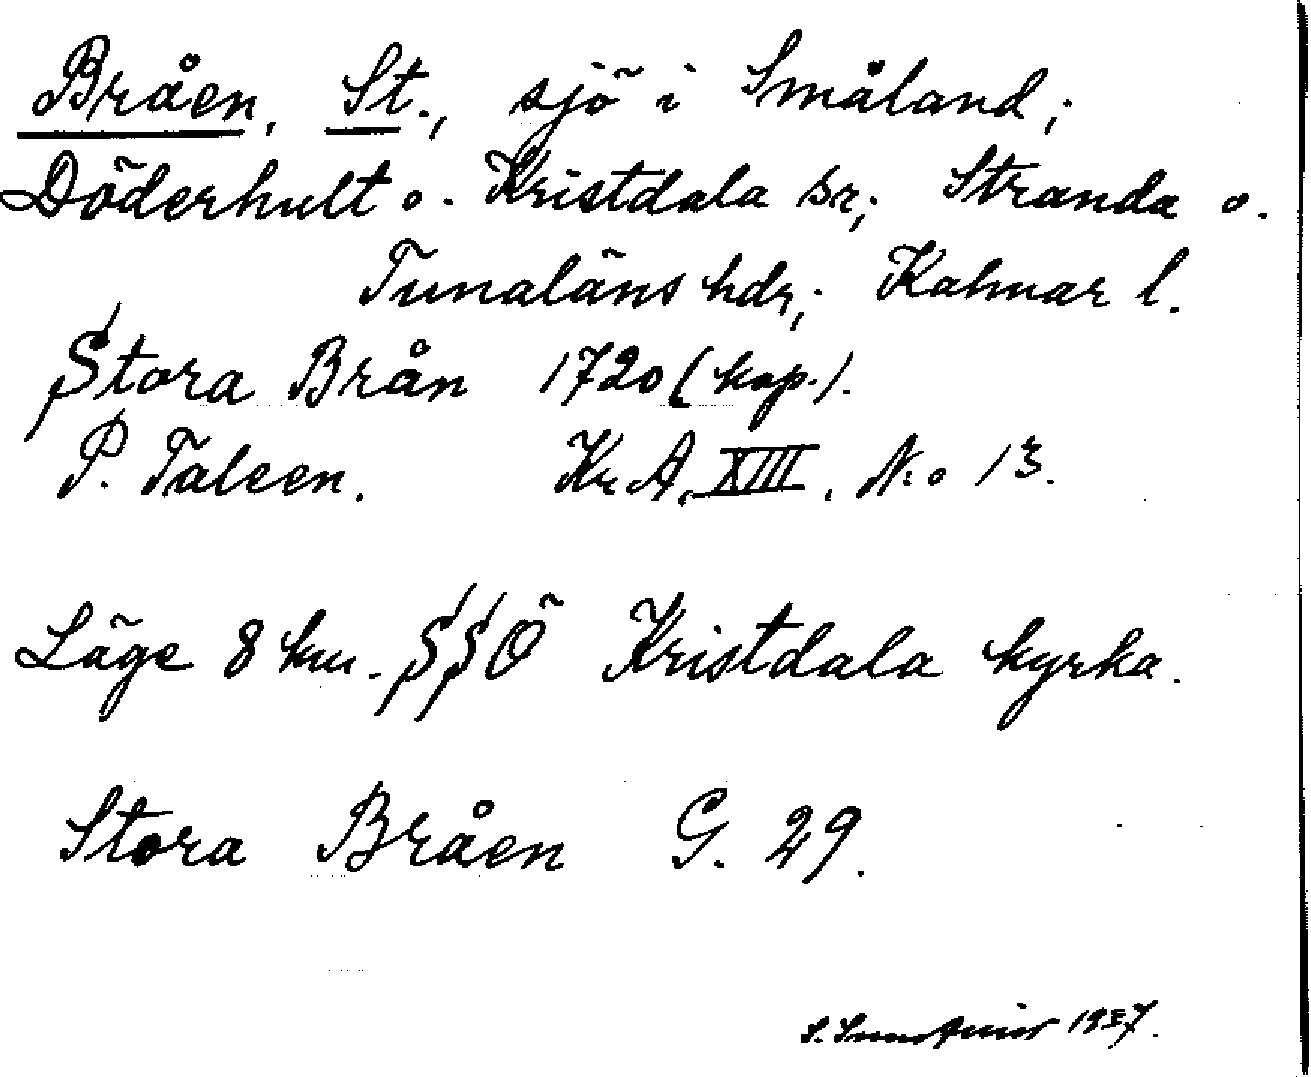 Bråen, St., sjö i Småland;
Döderhult o. Kristdala sr; Stranda o.
Tunaläns hdr; Kalmar l.
Stora Brån 1720 (kop.).
P. Taleen. Kr. A. XIII. N:o 13.
Läge 8 km. SSÖ Kristdala kyrka.
Stora Bråen G. 29.
S. 1937.